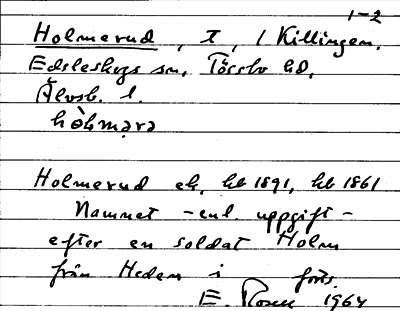 1-2
Holmerud, T, / Killingen.
Edsleskogs sn, Tössbo hd,
Älvsb. l.
hòhmərə
Holmerud ek, kb 1891, kb 1861
Namnet - enl. uppgift -
efter en soldat Holm
från Heden i forts.
E. 1964